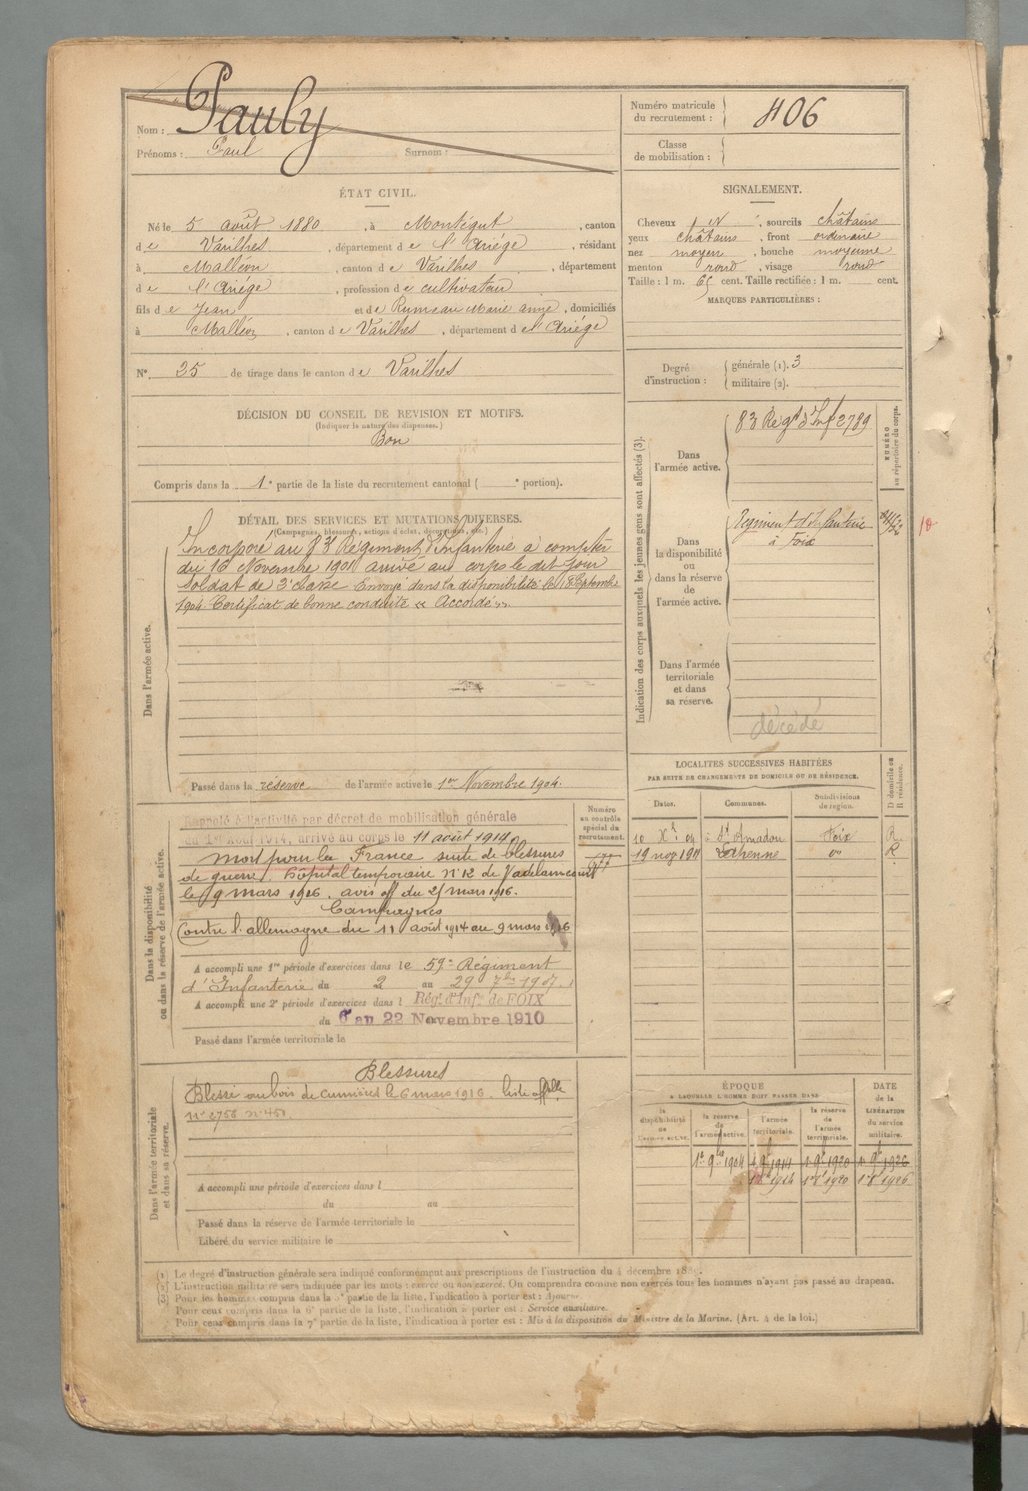 Nom : Pauly
Prénoms : Paul Surnom :
Numéro matricule du recrutement : 406
Classe de mobilisation :
ÉTAT CIVIL.
Né le 5 août 1880, à Montégut, canton
de Varilhes, département de l'Ariège, résidant
à Malléon, canton de Varilhes, département
de l'Ariège, profession de cultivateur
fils de Jean et de Rumeau Marie anne, domiciliés
à Malléon, canton de Varilhes, département de l'Ariège
N° 25 de tirage dans le canton de Varilhes
DÉCISION DU CONSEIL DE REVISION ET MOTIFS.
(Indiquer la nature des dispenses.)
Bon
Compris dans la 1e partie de la liste du recrutement cantonal ( e portion).
SIGNALEMENT.
Cheveux, sourcils châtains
yeux châtains, front ordinaire
nez moyen, bouche moyenne
menton rond, visage rond
Taille : 1 m. 65 cent. Taille rectifiée : 1 m. cent.
MARQUES PARTICULIÈRES :
Degré d'instruction : générale (1). 3
militaire (2).
DÉTAIL DES SERVICES ET MUTATIONS DIVERSES.
(Campagnes, blessures, actions d'éclat, décorations, etc.)
Dans l'armée active.
Incorporé au 83e Régiment d'Infanterie à compter
du 16 Novembre 1901 arrivé au corps le dit jour
Soldat de 2e classe Envoyé dans la disponibilité le 18 Septembre
1904. Certificat de bonne conduite « Accordé ».
Passé dans la réserve de l'armée active le 1er Novembre 1904.
Indication des corps auxquels les jeunes gens sont affectés (3).
NUMÉRO au répertoire du corps.
Dans l'armée active.
83 Régt d'Inf 2789
Dans la disponibilité ou dans la réserve de l'armée active.
Régiment d'Infanterie
à Foix
Dans l'armée territoriale et dans sa réserve.
décédé
Dans la disponibilité ou dans la réserve de l'armée active.
Rappelé à l'activité par décret de mobilisation générale
du 1er août 1914, arrivé au corps le 11 août 1914.
Mort pour la France suite de blessures
de guerre, hôpital temporaire N°12 de Vadelaincourt
le 9 mars 1916. avis off du 25 mars 1916.
Campagnes
Contre l'allemagne du 11 août 1914 au 9 mars 1916
A accompli une 1re période d'exercices dans le 59e Régiment
d'Infanterie du 2 au 29 7bre 1907.
A accompli une 2e période d'exercices dans l Régt d'Infie de FOIX
du 6 au 22 Novembre 1910
Passé dans l'armée territoriale le
Numéro au contrôle spécial du recrutement.
LOCALITÉS SUCCESSIVES HABITÉES
PAR SUITE DE CHANGEMENTS DE DOMICILE OU DE RÉSIDENCE.
Dates. Communes. Subdivisions de région. D domicile ou R résidence.
10 Xbre 04 à St Amadou Foix R
19 nov 1911 do R
Dans l'armée territoriale et dans sa réserve.
Blessures
Blessé au bois de Cumières le 6 mars 1916. liste offlle
A accompli une période d'exercices dans l
du au
Passé dans la réserve de l'armée territoriale le
Libéré du service militaire le
ÉPOQUE
A LAQUELLE L'HOMME DOIT PASSER DANS
la disponibilité de l'armée active.
la réserve de l'armée active.
l'armée territoriale.
la réserve de l'armée territoriale.
DATE de la LIBÉRATION du service militaire.
1er 9bre 1904 1er 9bre 1914 1er 9bre 1920 1er 9bre 1926
1er 8bre 1914 1er 8bre 1920 1er 8bre 1926
(1) Le degré d'instruction générale sera indiqué conformément aux prescriptions de l'instruction du 4 décembre
(2) L'instruction militaire sera indiquée par les mots : exercé ou non exercé. On comprendra comme non exercés tous les hommes n'ayant pas passé au drapeau.
(3) Pour les hommes compris dans la 5e partie de la liste, l'indication à porter est : Ajourné.
Pour ceux compris dans la 6e partie de la liste, l'indication à porter est : Service auxiliaire.
Pour ceux compris dans la 7e partie de la liste, l'indication à porter est : Mis à la disposition du Ministre de la Marine. (Art. 4 de la loi.)